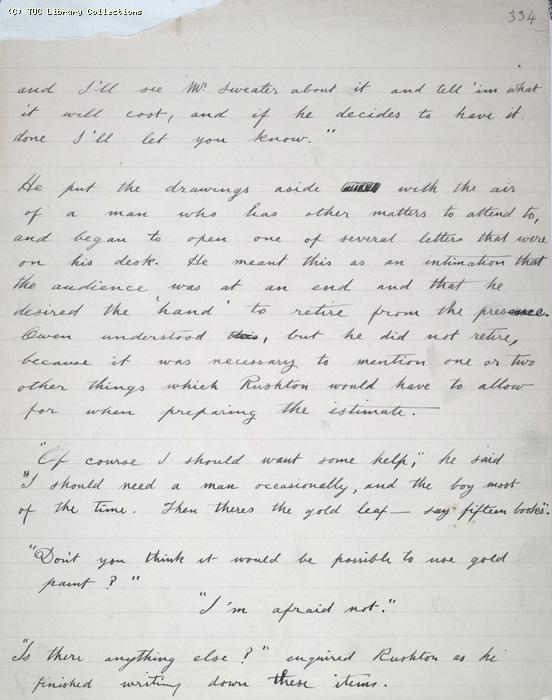 (C) TUC Library Collections
334
and I'll see Mr Sweater about it and tell 'im what
it will cost, and if he decides to have it
done I'll let you know."
He put the drawings aside with the air
of a man who has other matters to attend to,
and began to open one of several letters that were
on his desk. He meant this as an intimation that
the audience was at an end and that he
desired the 'hand' to retire from the presence.
Owen understood this, but he did not retire,
because it was necessary to mention one or two
other things which Rushton would have to allow
for when preparing the istimate.
"Of course I should want some help," he said
"I should need a man occasionally, and the boy most
of the time. Then theres the gold leaf — say fifteen books".
"Don't you think it would be possible to use gold
paint?"
"I'm afraid not."
"Is there anything else?" enquired Rushton as he
finished writing down these items.